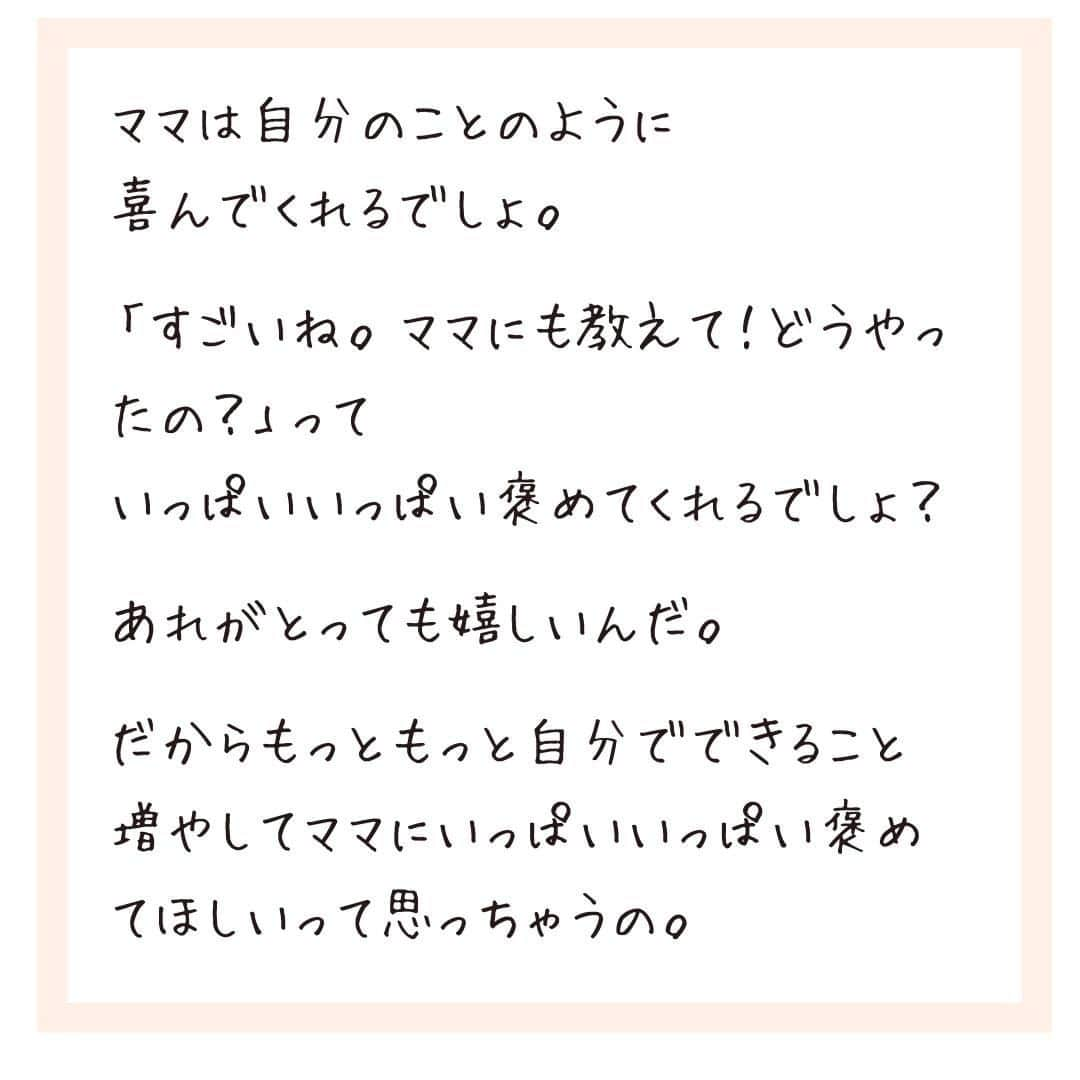 ママは自分のことのように
喜んでくれるでしょ。
「すごいね。ママにも教えて!どうやっ
たの?」って
いっぱいいっぱい褒めてくれるでしょ?
あれがとっても嬉しいんだ。
だからもっともっと自分でできること
増やしてママにいっぱいいっぱい褒め
てほしいって思っちゃうの。